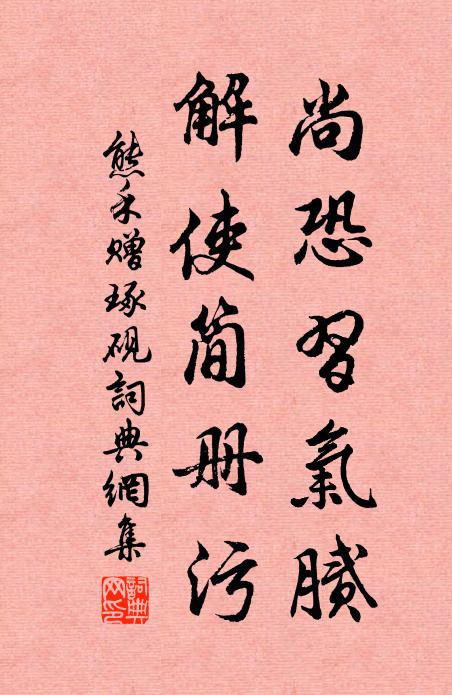 尚恐習氣膩
解使簡册污
熊禾贈琢硯詞典網集
詞典网印